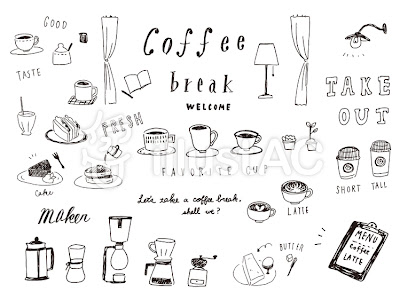 GOOD
TASTE
Coffee
break
WELCOME
TAKE
OUT
FRESH
illustAC
FAVORITE CUP
SHORT TALL
Cake
Let's take a coffee break,
shall we?
LATTE
Maker
BUTTER
MENU
Coffee
LATTE